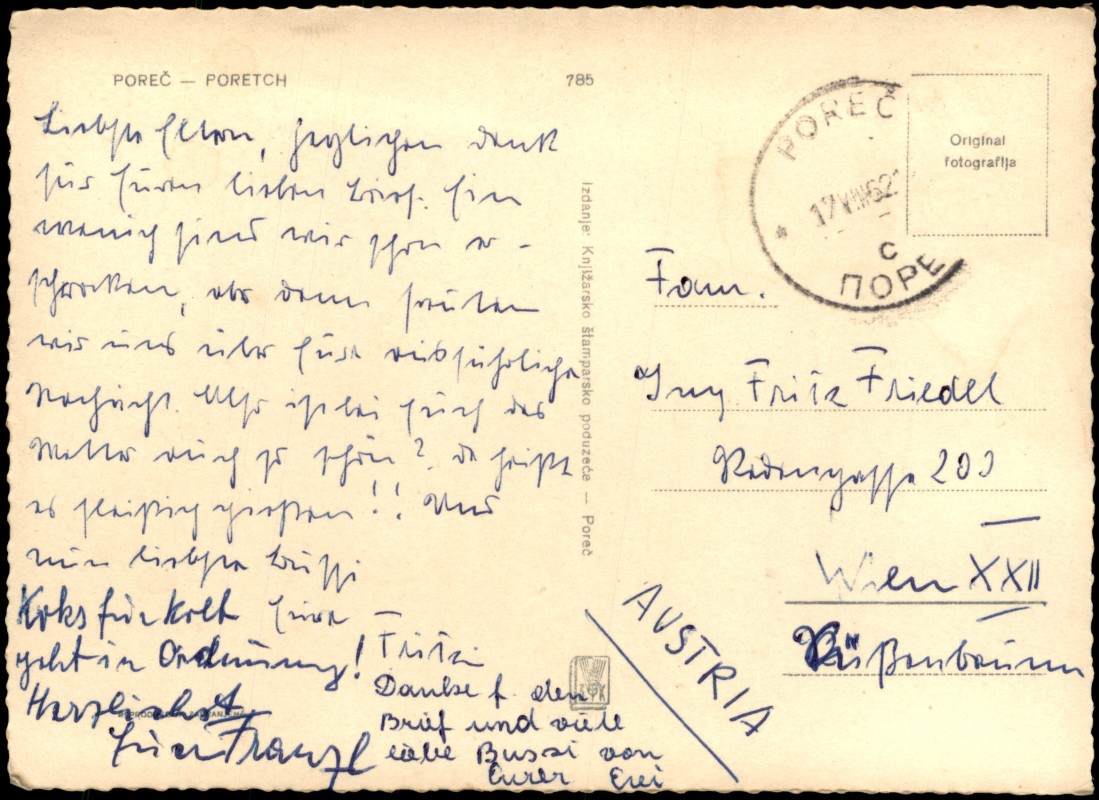 POREČ — PORETCH
785
Liebste Eltern, herzlichen Dank
für Euren lieben Brief. Ein
wenig sind wir schon er-
schrocken, aber dann freuten
wir uns über Eure ausführliche
Nachricht. Also ist bei Euch das
Wetter auch so schön? da heißt
es fleißig gießen!! Und
nun liebste Bussi
Eure
Fritzi
Koks für Kolt
geht in Ordnung!
Herzlichst
Euer Franzl
Danke f. den
Brief und viele
liebe Bussi von
Eurer Evi
Izdanje: Knjižarsko štamparsko poduzeće — Poreč
POREČ
17 VIII 62
C
ПОРЕ
Original
fotografija
Fam.
Ing Fritz Friedel
203
Wien XXII
Süßenbrunn
AUSTRIA